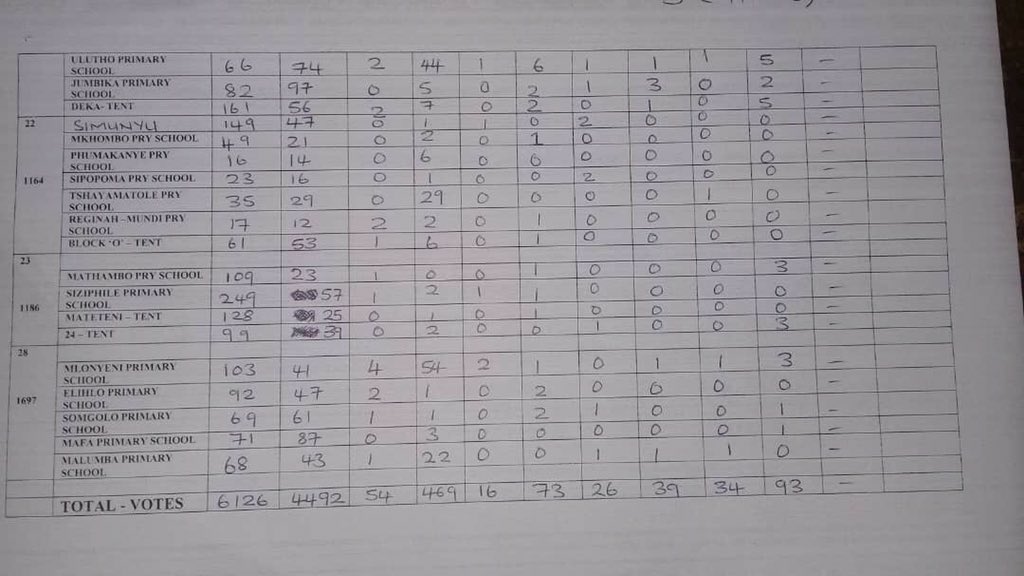 ULUTHO PRIMARY SCHOOL 66 74 2 44 1 6 1 1 1 5 –
JUMBIKA PRIMARY SCHOOL 82 97 0 5 0 2 1 3 0 2 –
DEKA- TENT 161 56 2 7 0 2 0 1 0 5 –
22
SIMUNYU 149 47 0 1 1 0 2 0 0 0 –
MKHOMBO PRY SCHOOL 49 21 0 2 0 1 0 0 0 0 –
PHUMAKANYE PRY SCHOOL 16 14 0 6 0 0 0 0 0 0 –
1164
SIPOPOMA PRY SCHOOL 23 16 0 1 0 0 2 0 0 0 –
TSHAYAMATOLE PRY SCHOOL 35 29 0 29 0 0 0 0 1 0 –
REGINAH –MUNDI PRY SCHOOL 17 12 2 2 0 1 0 0 0 0 –
BLOCK 'O' – TENT 61 53 1 6 0 1 0 0 0 0 –
23
MATHAMBO PRY SCHOOL 109 23 1 0 0 1 0 0 0 3 –
SIZIPHILE PRIMARY SCHOOL 249 57 1 2 1 1 0 0 0 0 –
1186
MATETENI – TENT 128 25 0 1 0 1 0 0 0 0 –
24 – TENT 99 39 0 2 0 0 1 0 0 3 –
28
MLONYENI PRIMARY SCHOOL 103 41 4 54 2 1 0 1 1 3 –
1697
ELIHLO PRIMARY SCHOOL 92 47 2 1 0 2 0 0 0 0 –
SOMGOLO PRIMARY SCHOOL 69 61 1 1 0 2 1 0 0 1 –
MAFA PRIMARY SCHOOL 71 87 0 3 0 0 0 0 0 1 –
MALUMBA PRIMARY SCHOOL 68 43 1 22 0 0 1 1 1 0 –
TOTAL - VOTES 6126 4492 54 469 16 73 26 39 34 93 –